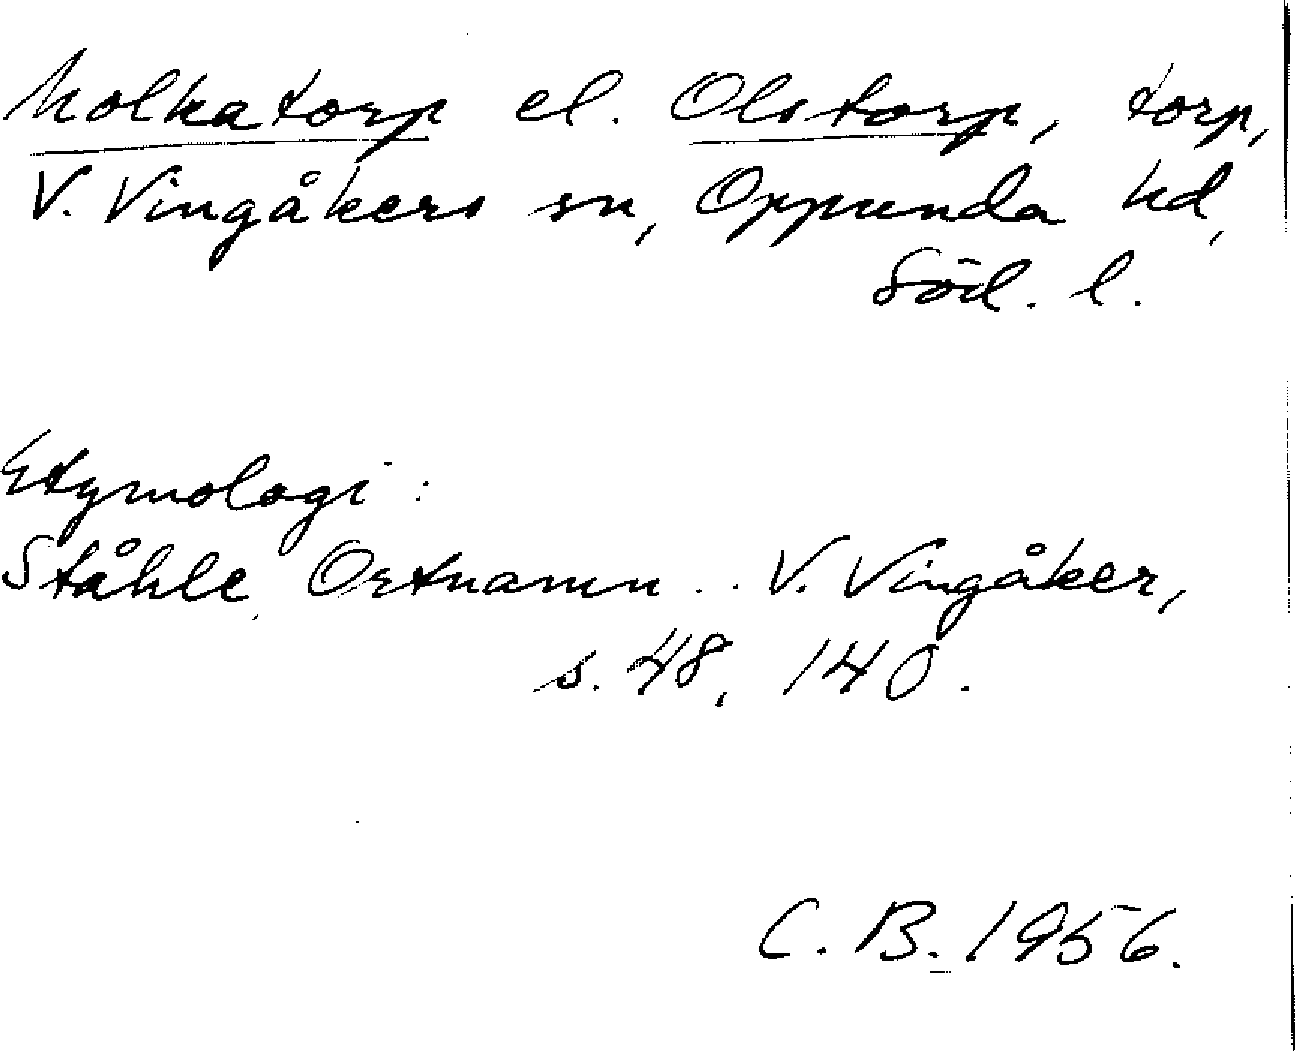 Molkatorp el. Olstorp, torp,
V. Vingåkers sn, Oppunda hd,
Söd. l.
Etymologi:
Ståhle, Ortnamn .. V. Vingåker,
s. 48, 140.
C. B. 1956.